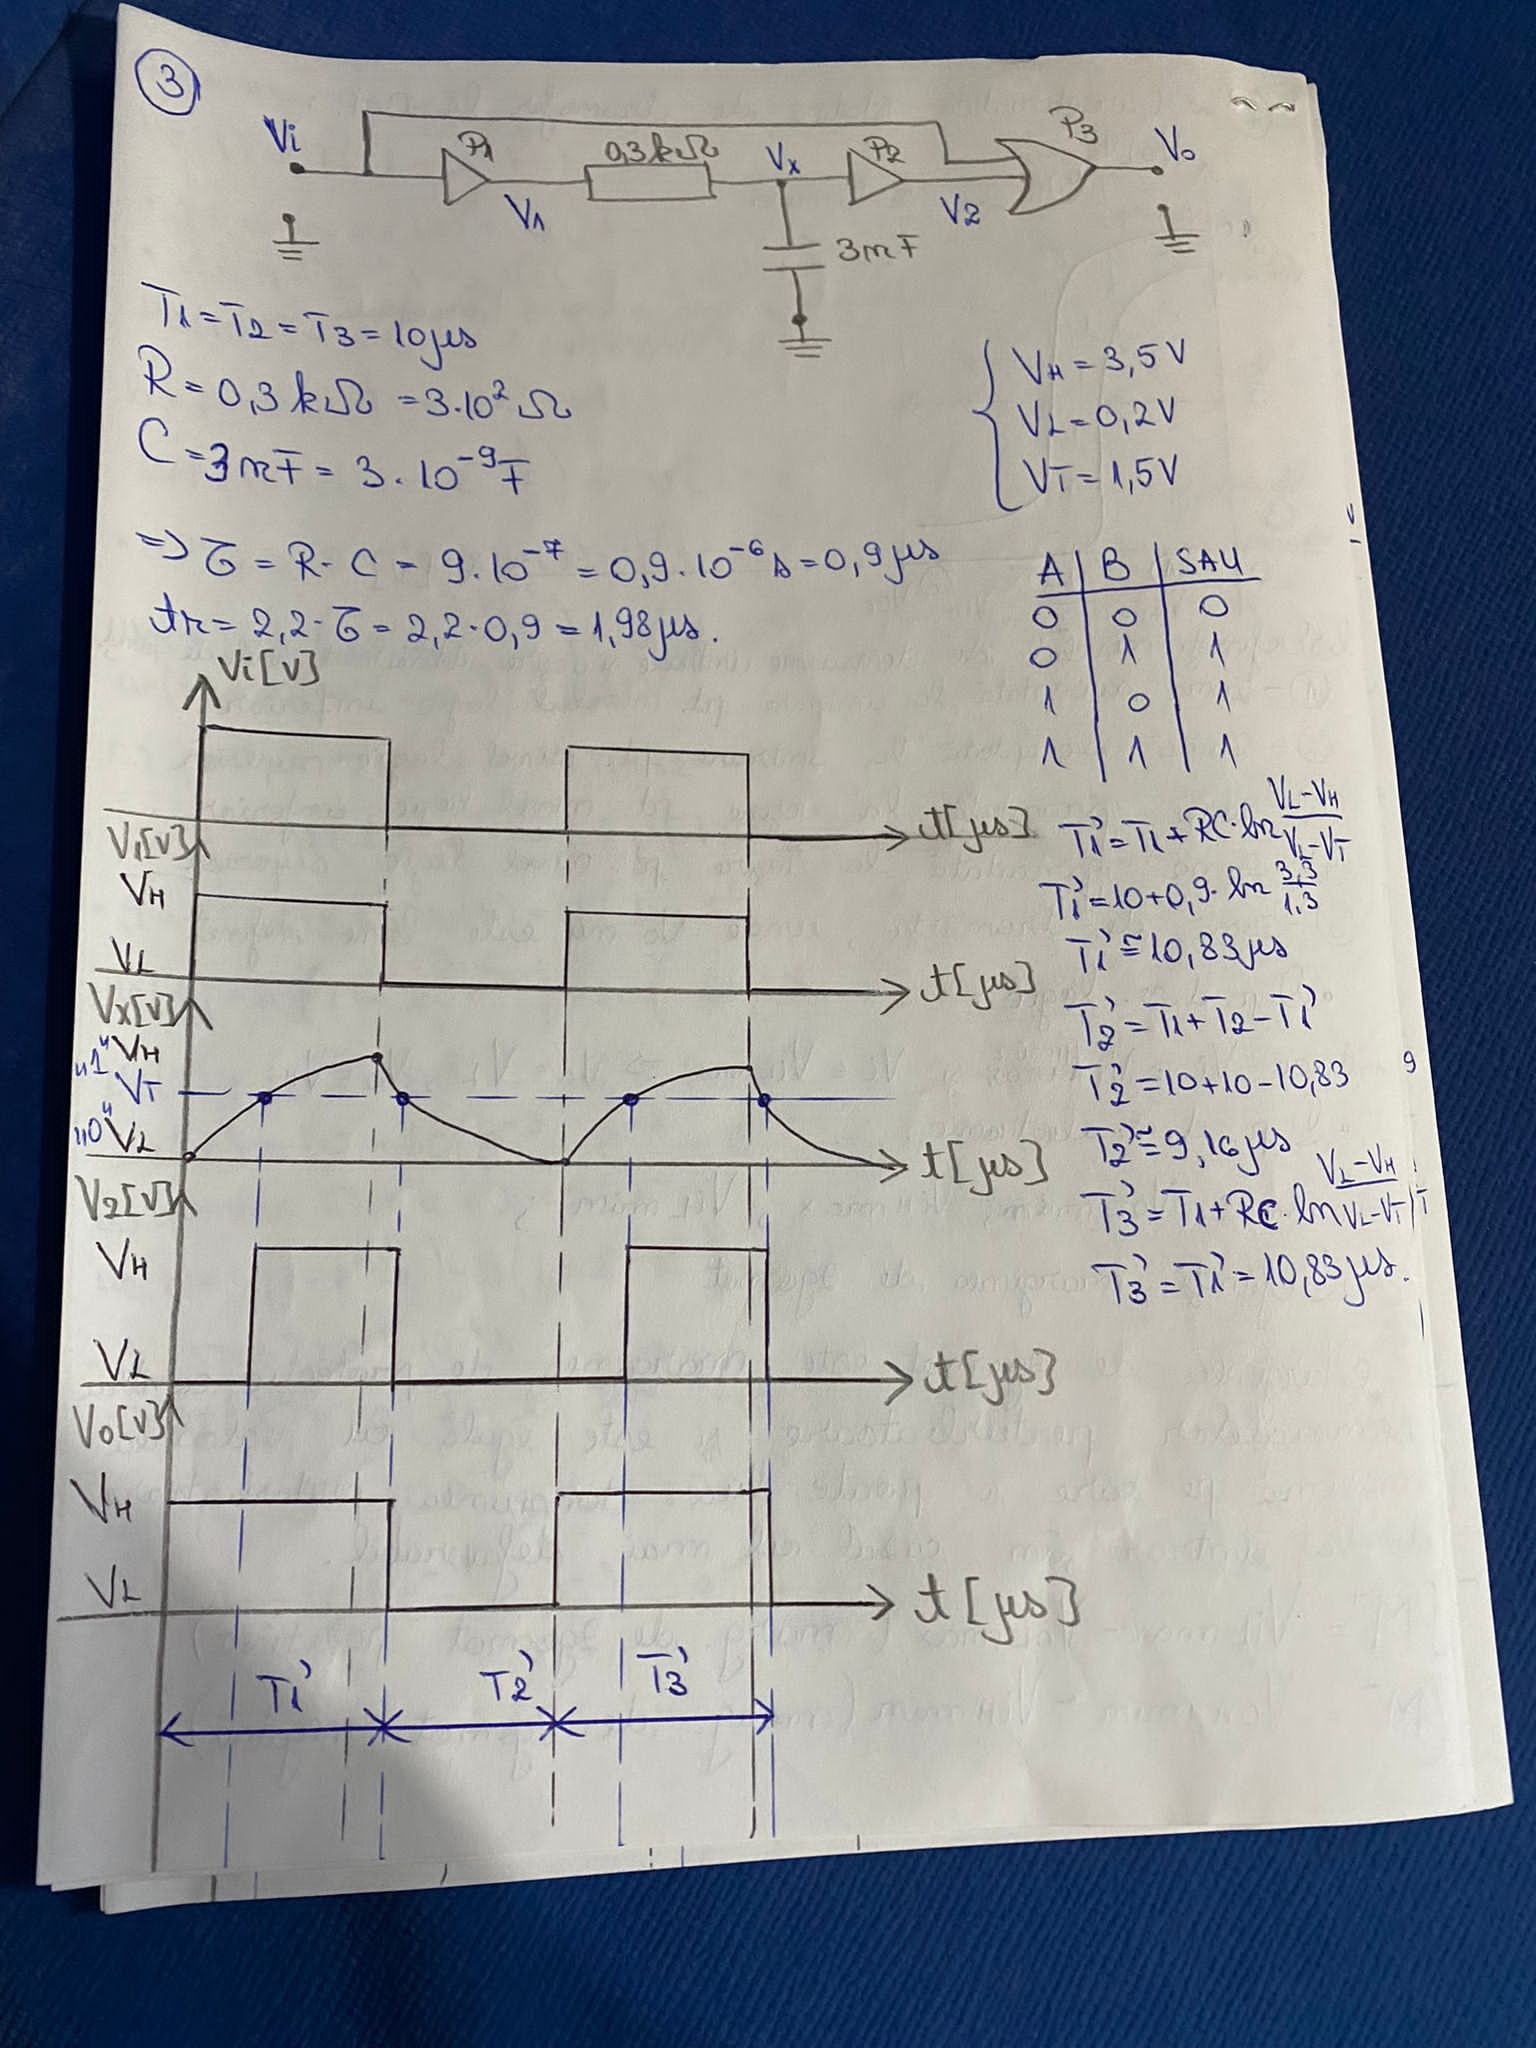 3
Vi P1 0,3kΩ Vx P2 P3 Vo
V1 V2
3nF
T1=T2=T3=10μs
R=0,3kΩ=3.10² Ω
C=3nF=3.10⁻⁹F
VH=3,5V
VL=0,2V
VT=1,5V
=> τ = R·C = 9.10⁻⁷ = 0,9.10⁻⁶s=0,9μs
tr=2,2·τ=2,2·0,9=1,98μs.
A B SAU
0 0 0
0 1 1
1 0 1
1 1 1
Vi[V]
t[μs]
V1[V]
VH
VL
t[μs]
Vx[V]
"1" VH
VT
"0" VL
t[μs]
V2[V]
VH
VL
t[μs]
Vo[V]
VH
VL
t[μs]
T1' T2' T3'
T1'=T1+RC·ln VL-VH/VL-VT
T1'=10+0,9·ln 3,3/1,3
T1'≅10,83μs
T2'=T1+T2-T1'
T2'=10+10-10,83
T2'≅9,16μs
T3'=T1+RC·ln VL-VH/VL-VT
T3'=T1'=10,83μs.